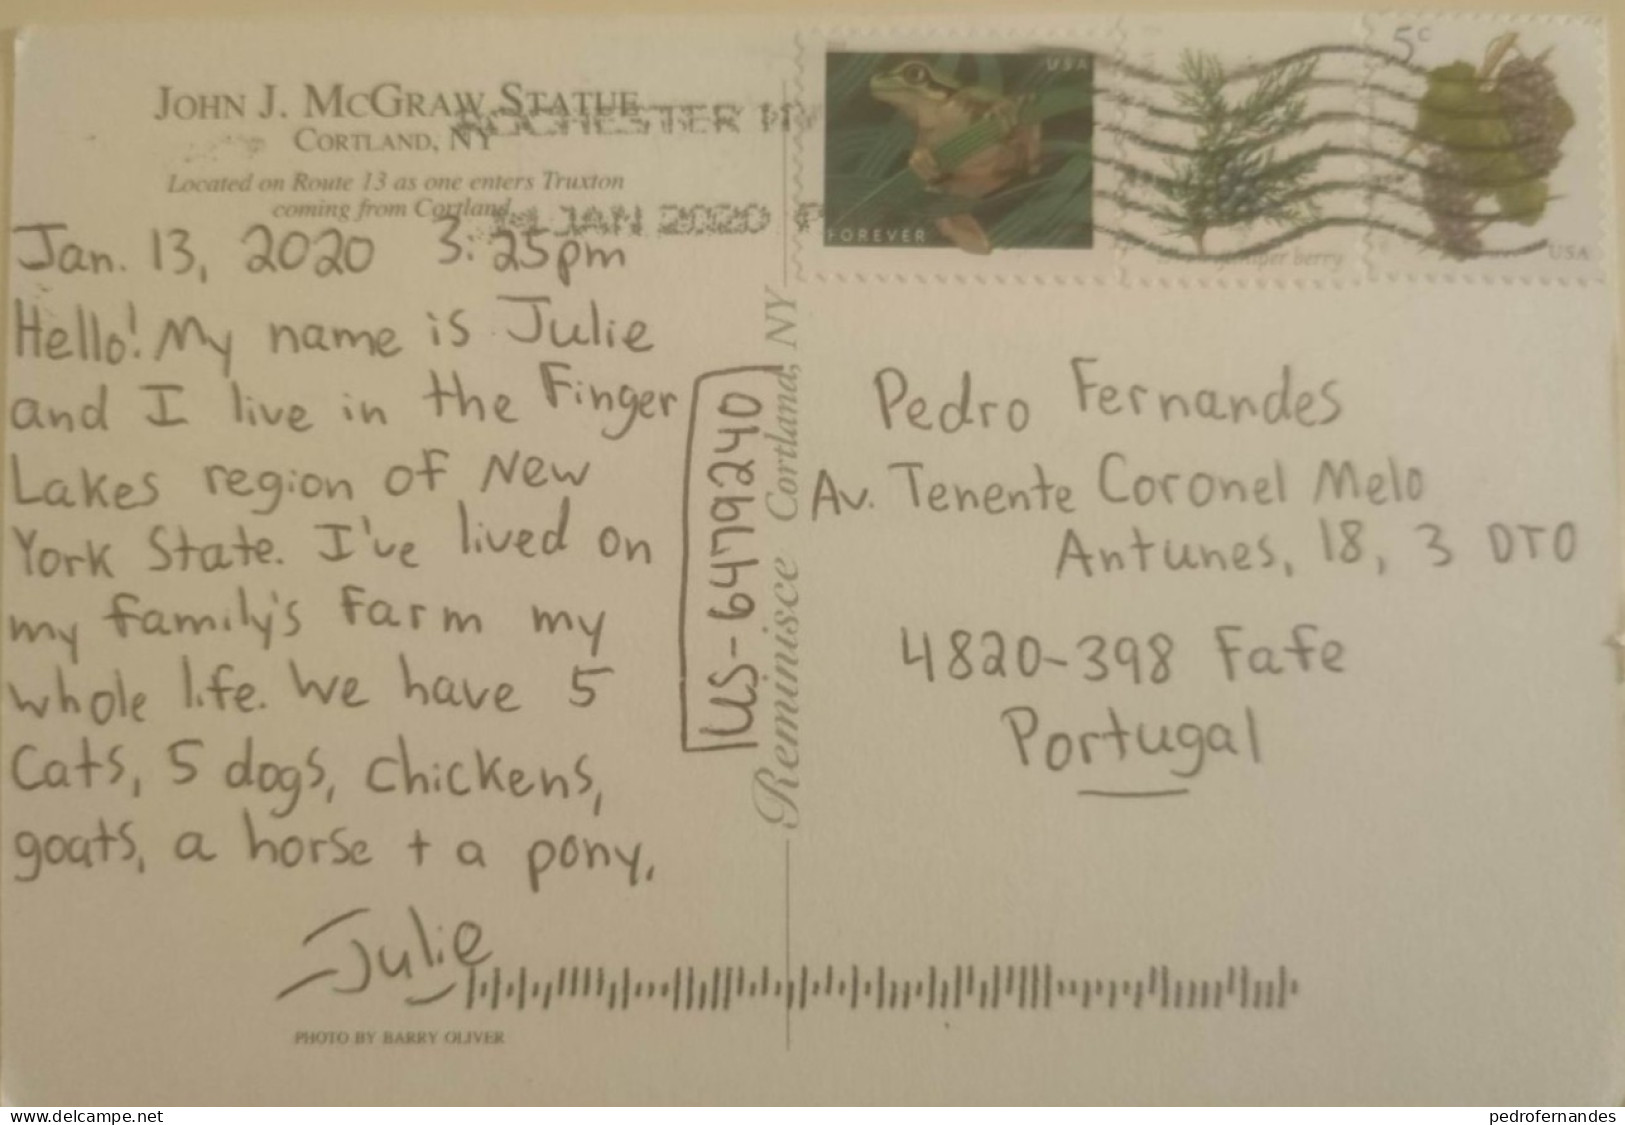 JOHN J. MCGRAW STATUE
CORTLAND, NY
Located on Route 13 as one enters Truxton
coming from Cortland
ROCHESTER NY
JAN 2020 P
Jan. 13, 2020 3:25pm
Hello! My name is Julie
and I live in the Finger
Lakes region of New
York State. I've lived on
my family's farm my
whole life. We have 5
cats, 5 dogs, chickens,
goats, a horse + a pony.
Julie
PHOTO BY BARRY OLIVER
Reminisce Cortland, NY
USA
FOREVER
berry
5c
USA
Pedro Fernandes
Av. Tenente Coronel Melo
Antunes, 18, 3 DTO
4820-398 Fafe
Portugal
www.delcampe.net
pedrofernandes